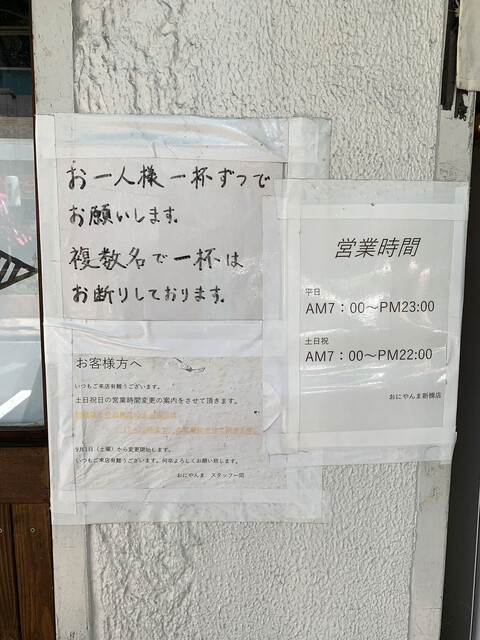 お一人様一杯ずつで
お願いします。
複数名で一杯は
お断りしております。
お客様方へ
いつもご来店有難うございます。
土日祝日の営業時間変更の案内をさせて頂きます。
9月1日（土曜）から変更開始します。
いつもご来店有難うございます。何卒よろしくお願い致します。
おにやんま　スタッフ一同
営業時間
平日
AM7：00～PM23:00
土日祝
AM7：00～PM22:00
おにやんま新橋店